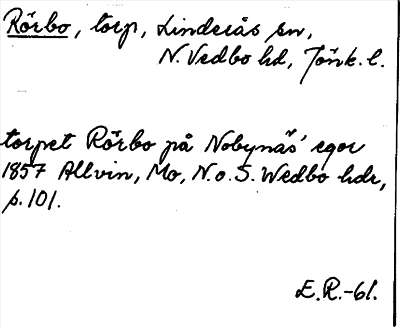 Rörbo, torp, Linderås sn,
N. Vedbo hd, Jönk. l.
torpet Rörbo på Nobynäs' egor
1857 Allvin, Mo, N. o. S. Wedbo hdr,
p. 101.
E.R.-61.